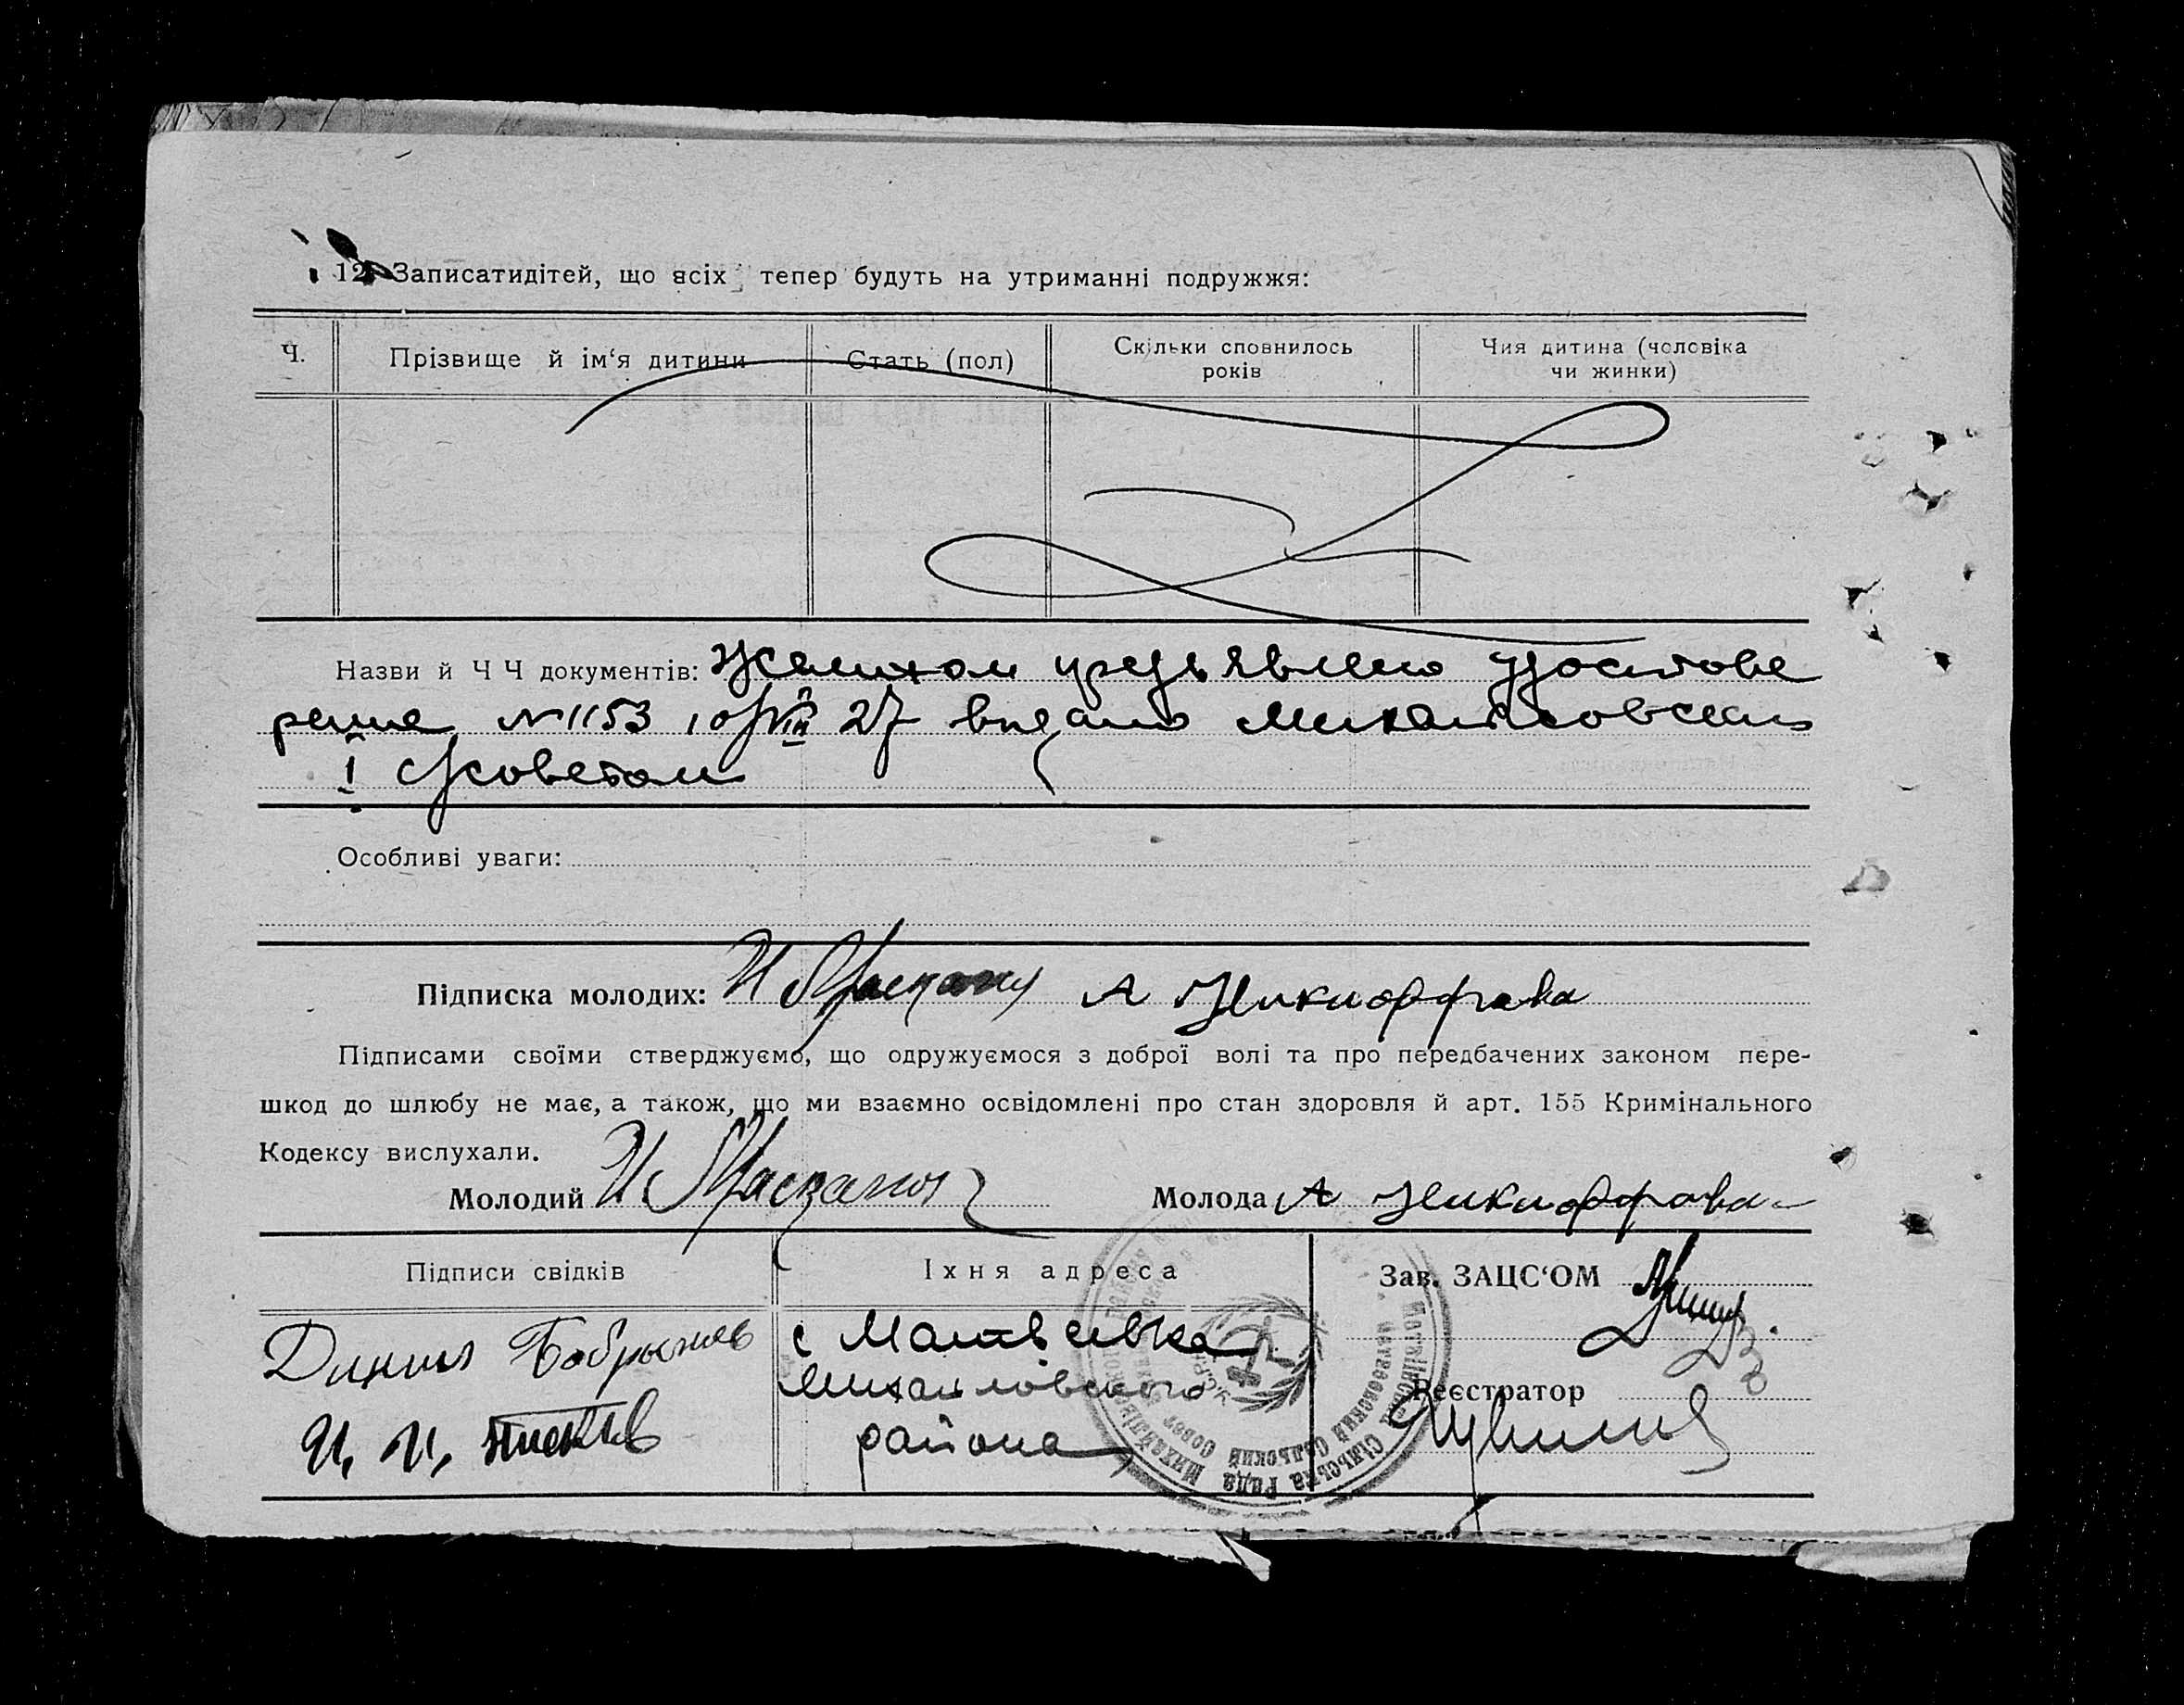 12. Записати дітей, що всіх тепер будуть на утриманні подружжя:
Ч. Прізвище й ім‘я дитини Стать (пол) Скільки сповнилось років Чия дитина (чоловіка чи жинки)
Назви й Ч Ч документів: Женихом предъявлено удостове
рение № 1153 10/VIII 27 выдано Михайловским
I с/советом
Особливі уваги:
Підписка молодих: И А Никиоррова
Підписами своїми стверджуємо, що одружуємося з доброї волі та про передбачених законом пере-
шкод до шлюбу не має, а також, що ми взаємно освідомлені про стан здоровля й арт. 155 Кримінального
Кодексу вислухали.
Молодий И Молода А Никиоррова
Підписи свідків Їхня адреса Зав. ЗАЦС‘ОМ
Данил Бобрынев с Матвеивка
Михайловского Реєстратор
И. И. района
Сільська Рада
Сельский Совет